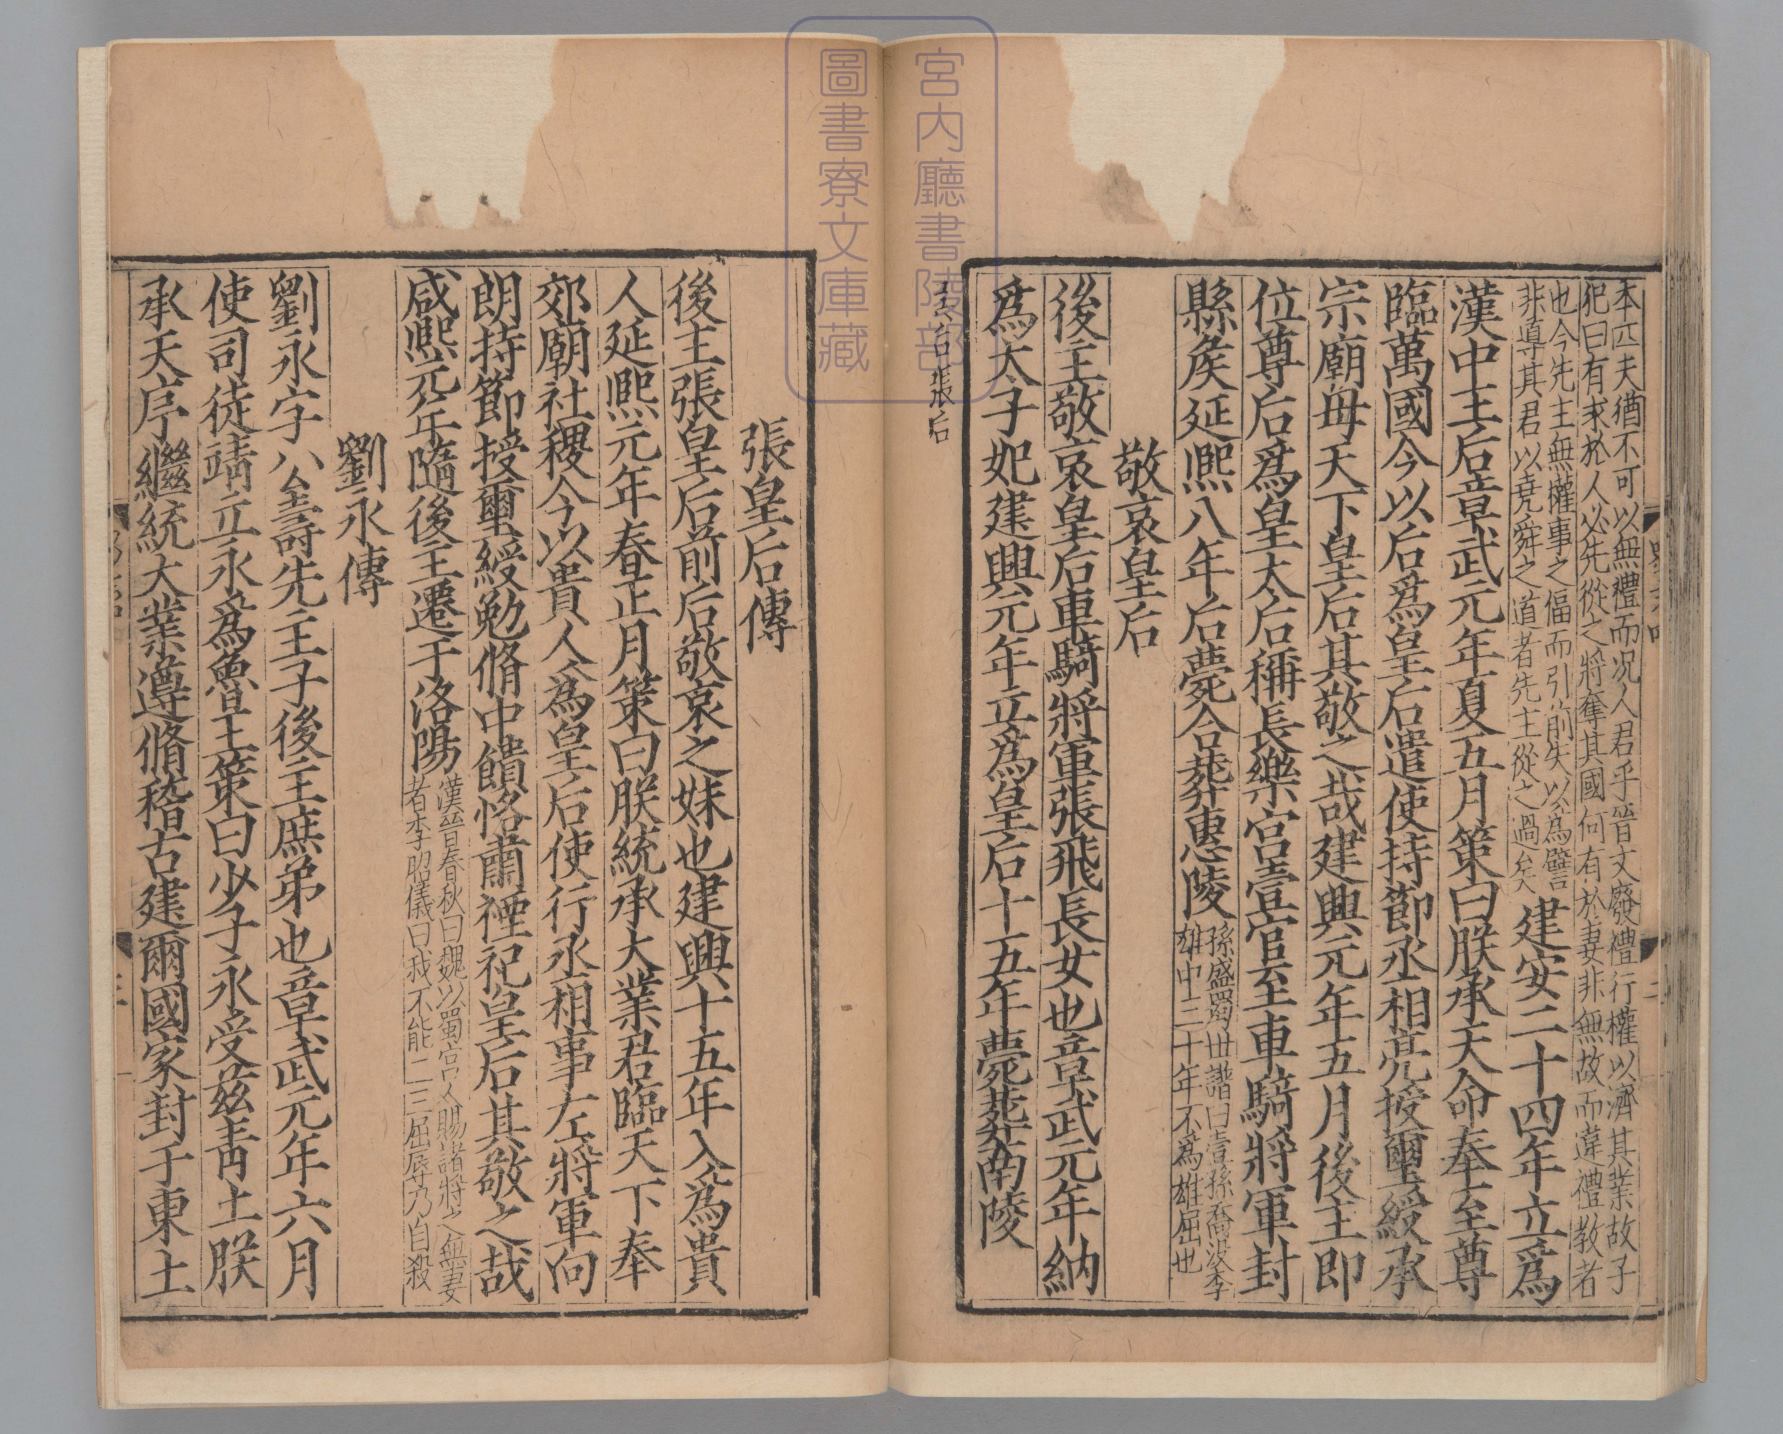 本匹夫猶不可以無禮而况人君乎晉文廢禮行權以濟其業故子
犯曰有求於人必先從之將奪其國何有於妻非無故而違禮教者
也今先主無權事之偪而引前失以為譬
非導其君以堯舜之道者先主從之過矣
建安二十四年立為
漢中王后章武元年夏五月策曰朕承天命奉至尊
臨萬國今以后為皇后遣使持節丞相亮授璽綬承
宗廟母天下皇后其敬之哉建興元年五月後主即
位尊后為皇太后稱長樂宮壹官至車騎將軍封
縣矦延熙八年后薨合葬惠陵
孫盛蜀世譜曰壹孫喬沒李
雄中三十年不為雄屈也
敬哀皇后
後主敬哀皇后車騎將軍張飛長女也章武元年納
為太子妃建興元年立為皇后十五年薨葬南陵
張后
張皇后傳
後主張皇后前后敬哀之妹也建興十五年入為貴
人延熙元年春正月策曰朕統承大業君臨天下奉
郊廟社稷今以貴人為皇后使行丞相事左將軍向
朗持節授璽綬勉脩中饋恪肅禋祀皇后其敬之哉
咸熙元年隨後主遷于洛陽
漢晉春秋曰魏以蜀宮人賜諸將之無妻
者李昭儀曰我不能二三屈辱乃自殺
劉永傳
劉永字公壽先主子後主庶弟也章武元年六月
使司徒靖立永為魯王策曰少子永受茲青土朕
承天序繼統大業遵脩稽古建爾國家封于東土
宮内廳書陵部
圖書寮文庫藏